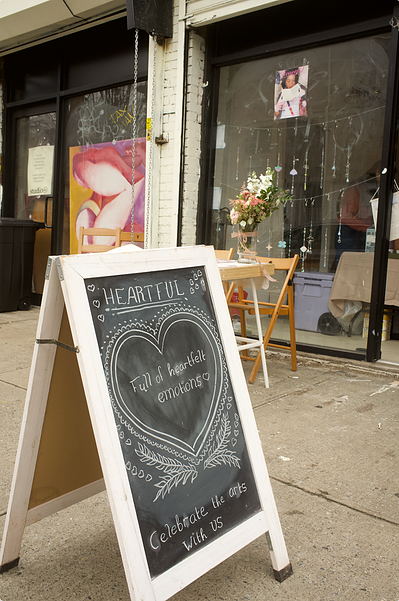 HEARTFUL
Full of heartfelt
emotions
Celebrate the arts
With US